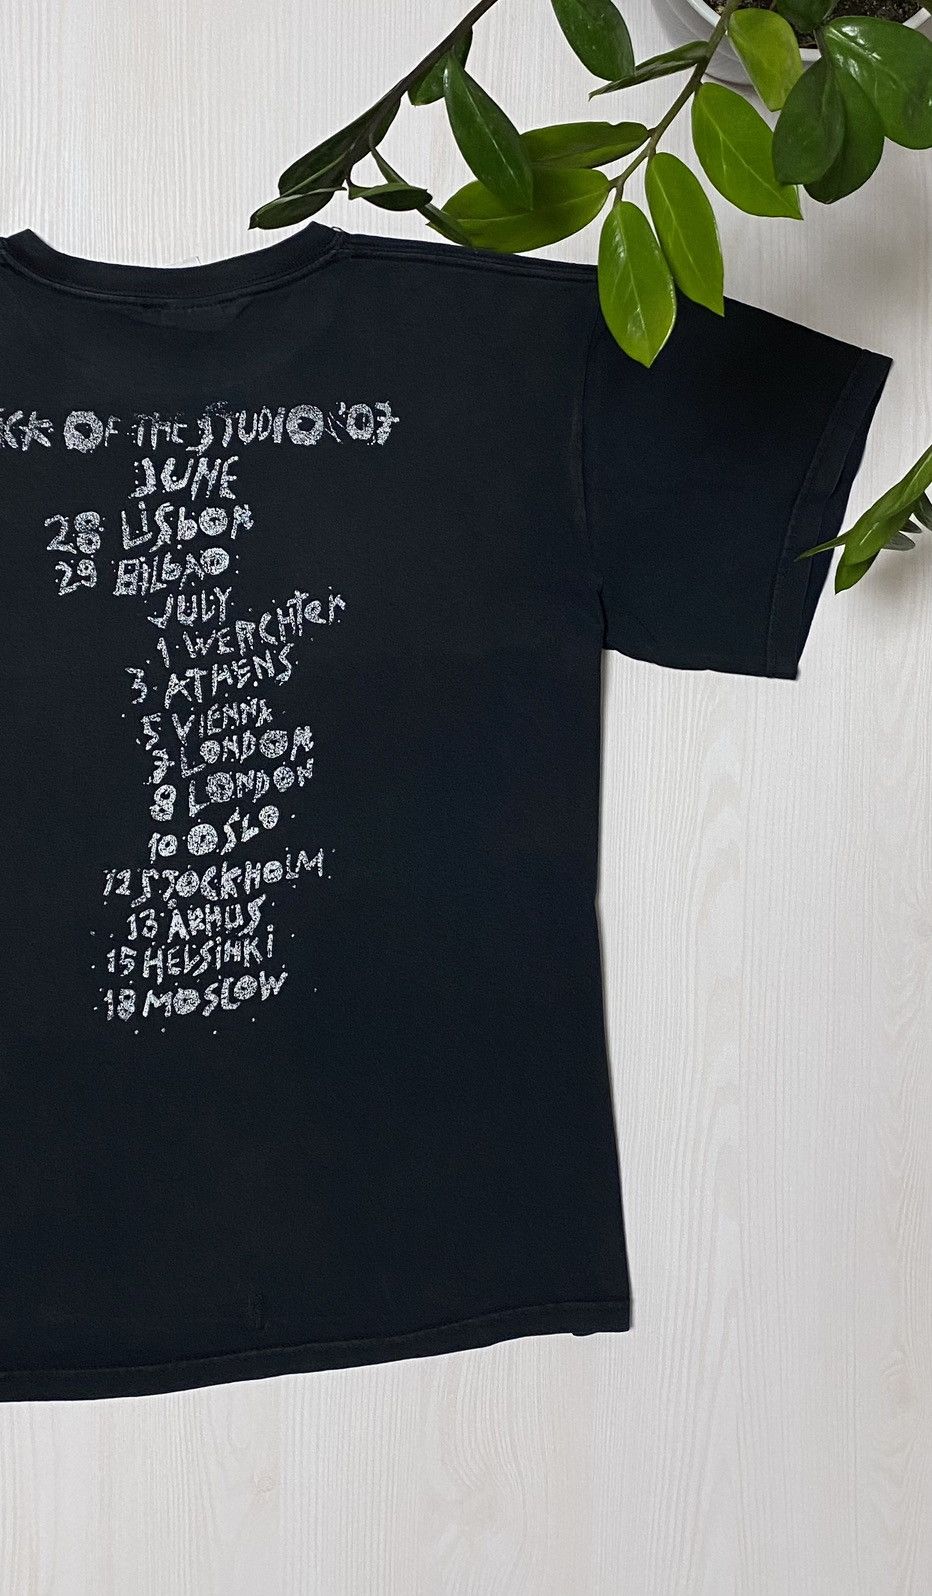 CK OF THE STUDIO '07
JUNE
28 LISBON
29 BILBAO
JULY
1 WERCHTER
3 ATHENS
5 VIENNA
7 LONDON
8 LONDON
10 OSLO
12 STOCKHOLM
13 ÅRHUS
15 HELSINKI
18 MOSCOW